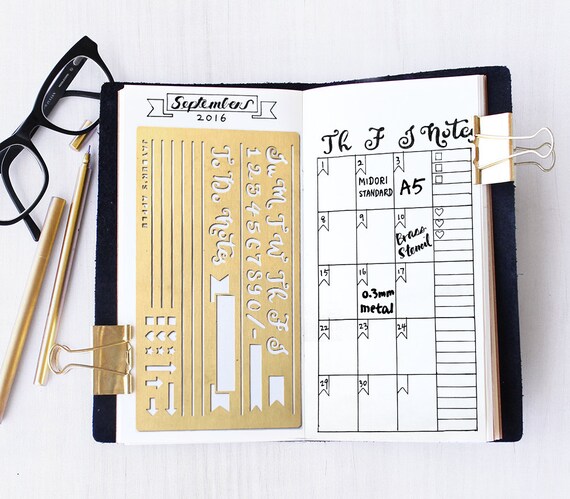 September
2016
Su M T W Th F S
1234567890/-
To Do Notes
Th F S Notes
1 2 3
MIDORI
STANDARD
A5
8 9 10
Brass
Stencil
15 16 17
0.3mm
metal
22 23 24
29 30